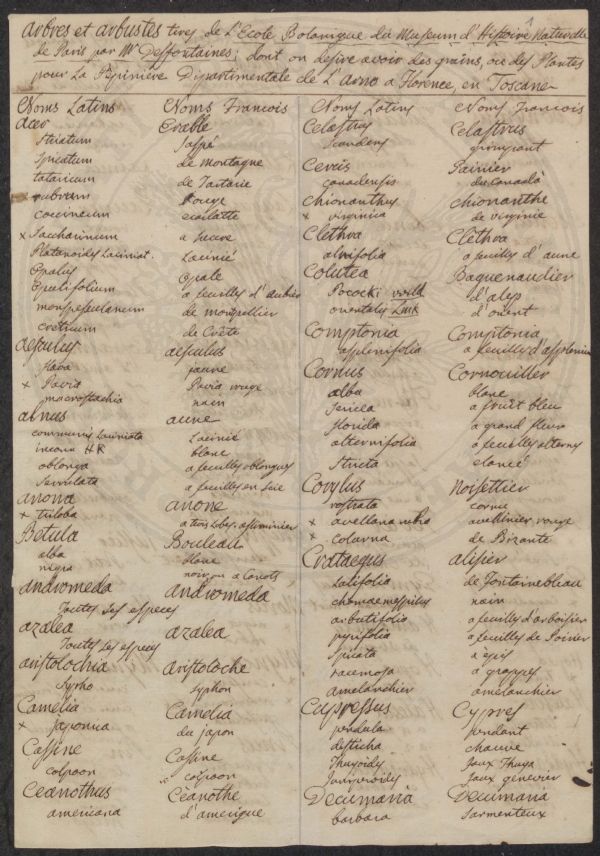 arbres et arbustes tirés de L'Ecole Botanique du Museum d'Histoire Naturelle
de Paris par Mr Desfontaines; dont on desire avoir des grains, ou des Plantes
pour La Pepiniere Dipartimentale de L'Arno a Florence, en Toscane
Noms Latins Noms Francois
Acer Erable
Striatum Jaspé
Spicatum de montagne
tataricum de Tartarie
rubrum Rouge
coccineum ecarlatte
x Saccharinum a sucre
Platanoides Laciniat. Lacinié
Opalus Opale
Opulifolium a feuilles d'aubier
monspesulanum de montpellier
creticum de Crète
aesculus aesculus
flava jaune
x Pavia Pavia rouge
macrostachia nain
alnus aune
communis Launiata Lacinié
incana HK blanc
oblonga a feuilles oblongues
serrulata a feuilles en scie
anona anone
x triloba a trois lobes. assiminier
Betula Bouleau
alba blanc
nigra noir ou a canots
andromeda andromeda
Toutes Les especes
azalea azalea
Toutes Les especes
aristolochia aristoloche
Sypho syphon
Camelia Camelia
x japonica du japon
Cassine Cassine
colpoon colpoon
Ceanothus Céanothe
americana d'amerique
Noms Latins Noms Francois
Celastrus Celastrus
Scandens grimpant
Cercis Gainier
canadensis du Canada
chionanthus chionanthe
x virginica de virginie
Clethra Clethra
alnifolia a feuilles d'aune
Colutea Baguenaudier
Pococki Willd d'alep
orientalis Lmk d'orient
Comptonia Comptonia
asplenifolia a feuilles d'asplenium
Cornus Cornouiller
alba blanc
Sericea a fruit bleu
florida a grand fleurs
alternifolia a feuilles alternes
Stricta elancé
Corylus noisettier
rostrata cornu
x avellana rubra avellinier rouge
x colurna de Bizante
Crataegus alisier
Latifolia de Fontainebleau
chamaemespilus nain
arbutifolia a feuilles d'arboisier
pyrifolia a feuilles de Poirier
Spicata a épis
racemosa a grappes
amelanchier amelanchier
Cupressus Cypres
pendula pendant
disticha chauve
Thuyoides faux Thuya
Juniperoides faux genevrier
Decumaria Decumaria
barbara Sarmenteux